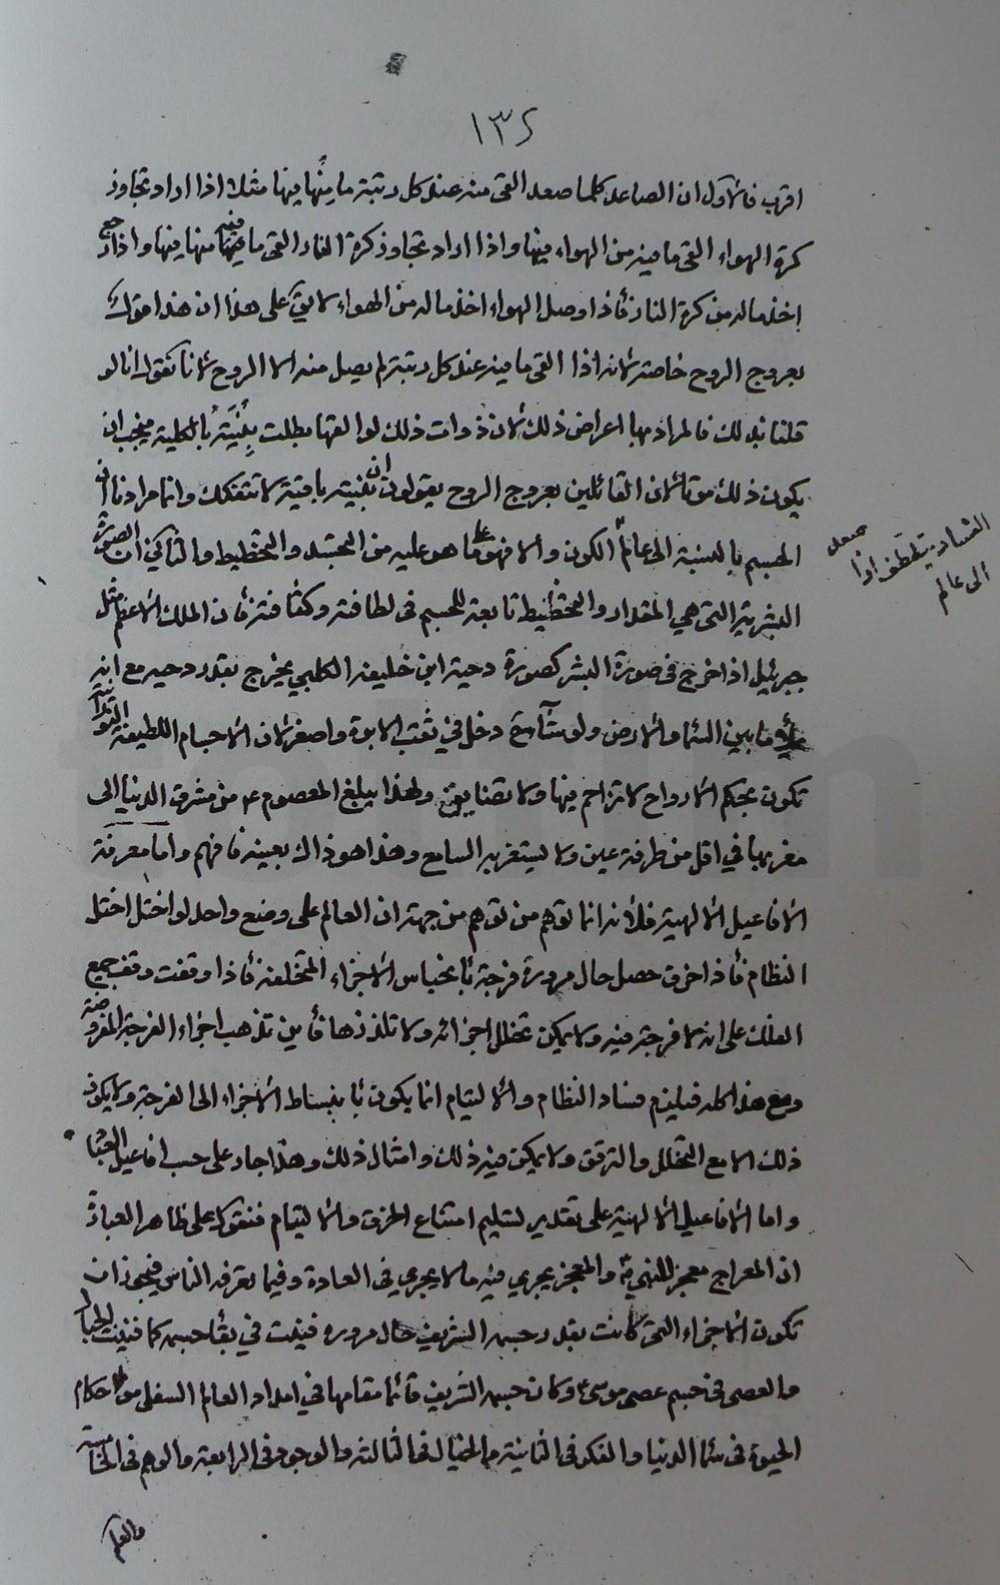 ١٣٤
اقرب فالاول ان الصاعد كلما صعد القى منه عند كل رتبة ما منها فيها مثلا اذا اراد تجاوز
كرة الهواء القى ما فيه من الهواء فيها واذا اراد تجاوز كرة النار القى ما فيه منها فيها واذا رجع
اخذ ماله من كرة النار فاذا وصل الهواء اخذ ماله من الهواء لا يقال على هذا ان هذا قول
بعروج الروح خاصة لانه اذا القى ما فيه عند كل رتبة لم يصل منه الا الروح لانا نقول انا لو
قلنا بذلك فالمراد بها اعراض ذلك لان ذوات ذلك لو القاها بطلت بنيته بالكلية فيجب ان
يكون ذلك موتا لان القائلين بعروج الروح يقولون ان بنيته باقية لا تتفكك وانما مرادنا ان
الجسم بالنسبة الى عالم الكون والا فهو على ما هو عليه من التجسد والتخطيط والثاني ان الصورة
الفساد يتلطف اذا صعد
الى عالم
البشرية التي هي المقدار والتخطيط تابعة للجسم في لطافته وكثافته فان الملك الاعظم مثل
جبرئيل اذا خرج في صورة البشر كصورة دحية ابن خليفه الكلبي يخرج بقدر دحيه مع انه
يملأ ما بين السماء والارض ولو شاء دخل في ثقب الابرة واصغر لان الاجسام اللطيفة النورانية
تكون بحكم الارواح لا تزاحم فيها ولا تضايق ولهذا يبلغ المعصوم ع من مشرق الدنيا الى
مغربها في اقل من طرفة عين ولا يستغربه السامع وهذا هو ذاك بعينه فافهم واما معرفة
الافاعيل الالهية فلانه انما توهم من توهم من جهة ان العالم على وضع واحد لو اختل اختل
النظام فاذا خرق حصل حال مروره فرجة بانحباس الاجزاء المتخلفة فاذا وقفت وقف جميع
الفلك على انه لا فرجة فيه ولا يمكن تخلل اجزائه ولا تلززها فأين تذهب اجزاء الفرجة المفروضة
ومع هذا كله فيلزم فساد النظام والالتيام انما يكون بانبساط الاجزاء الى الفرجة ولا يكون
ذلك الا مع التخلل والترقق ولا يمكن فيه ذلك وامثال ذلك وهذا جار على حسب افاعيل العباد
واما الافاعيل الالهية على تقدير تسليم امتناع الخرق والالتيام فنقول على ظاهر العبارة
ان المعراج معجز للنبي ص والمعجز يجري فيه ما لا يجري في العادة وفيما تعرفه الناس فيجوز ان
تكون الاجزاء التي كانت بقدر جسمه الشريف حال مروره فنيت في بقاء جسمه كما فنيت الحبال
والعصي في جسم عصى موسى ع وكان جسمه الشريف قائما مقامها في امداد العالم السفلي من احكام
الحيوة في سماء الدنيا والفكر في الثانية والخيال في الثالثة والوجود في الرابعة والوهم في الخامسة
والعلم